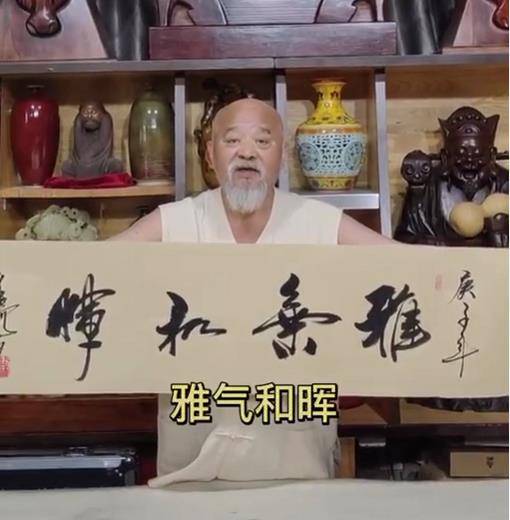 庚子年
雅氣和暉
雅气和晖